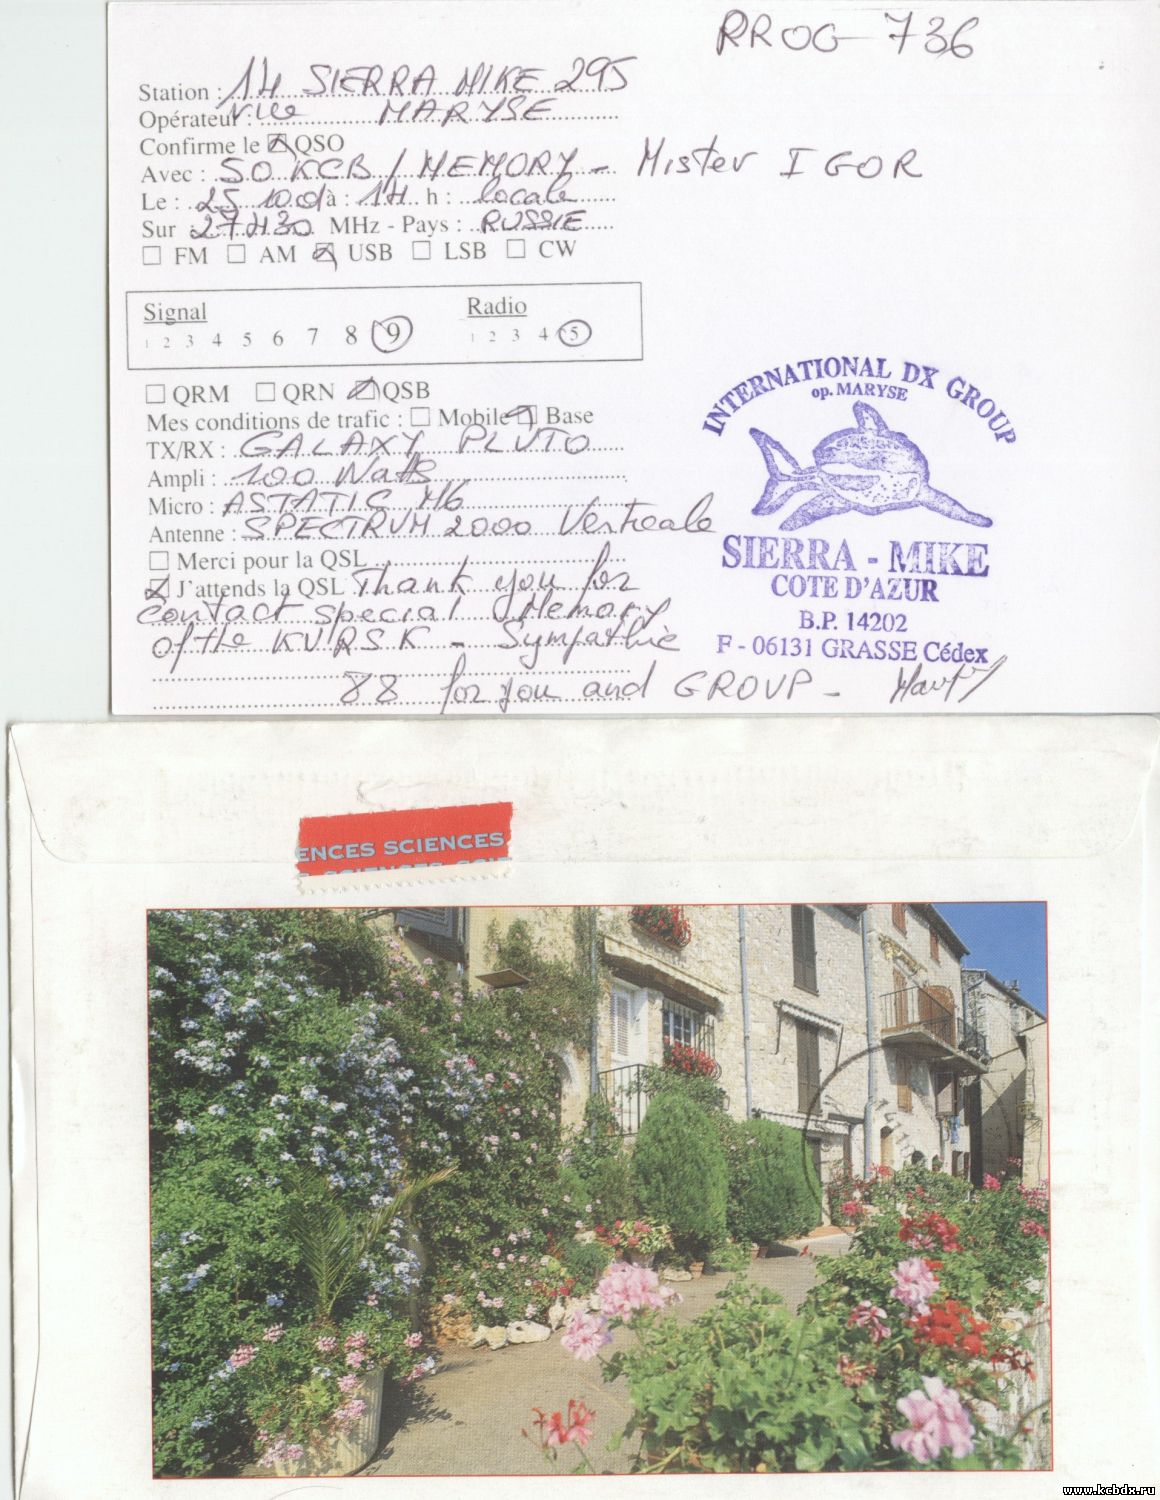 RROG - 736
Station : 14 SIERRA MIKE 295
Opérateur : MARYSE
Confirme le QSO
Avec : 50 KCB / MEMORY - Mister IGOR
Le : 25 10 01 à : 14 h : locale
Sur : 27430 MHz - Pays : RUSSIE
FM AM USB LSB CW
Signal Radio
1 2 3 4 5 6 7 8 9 1 2 3 4 5
QRM QRN QSB
Mes conditions de trafic : Mobile Base
TX/RX : GALAXY PLUTO
Ampli : 100 Watts
Micro : ASTATIC
Antenne : SPECTRUM 2000 Verticale
Merci pour la QSL
J'attends la QSL Thank you for
contact special Memory
of the KURSK - Sympathie
88 for you and GROUP -
INTERNATIONAL DX GROUP
op. MARYSE
SIERRA - MIKE
COTE D'AZUR
B.P. 14202
F - 06131 GRASSE Cédex
ENCES SCIENCES
www.kcbdx.ru